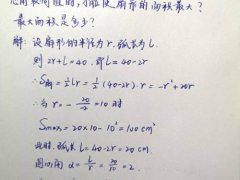 心角取何值时，才能使扇形的面积最大？
最大面积是多少？
解：设扇形的半径为r，弧长为l.
则 2r+l=40，即l=40-2r
∴S扇=½lr=½(40-2r)·r=-r²+20r
∴当r=-20/-2=10时
Smax=20×10-10²=100cm²
此时，弧长l=40-2r=20cm.
圆心角α=l/r=20/10=2.